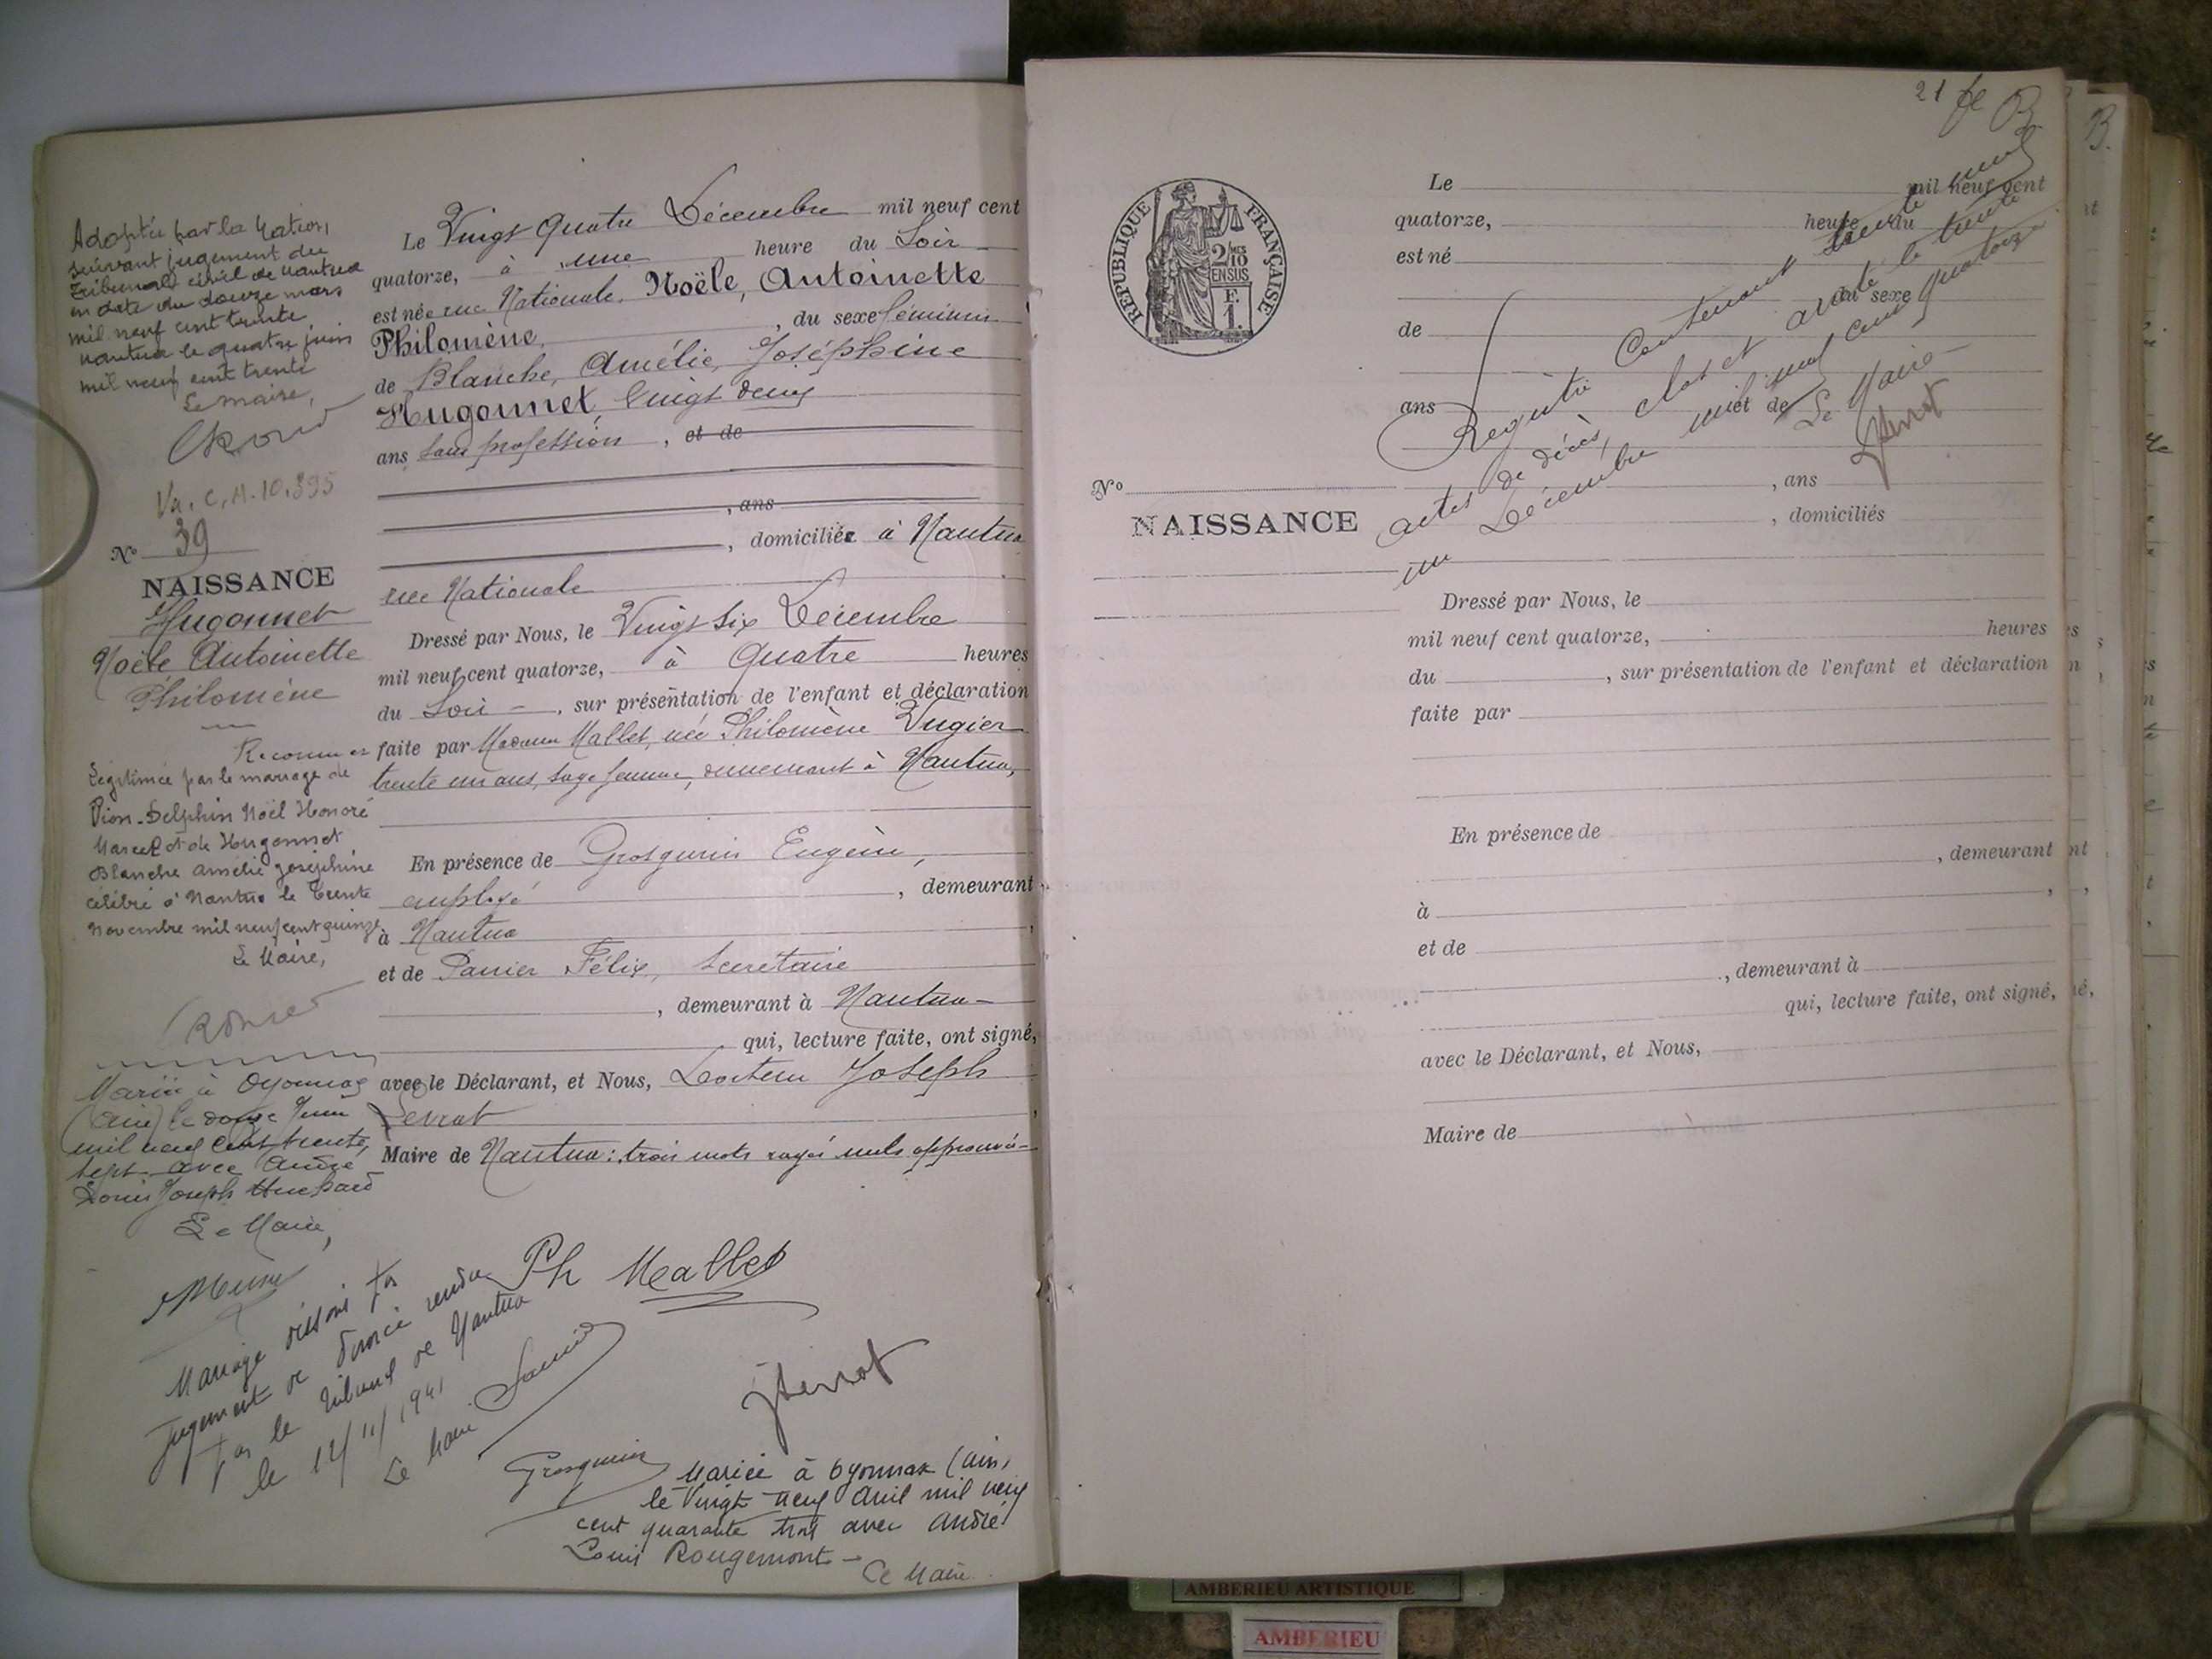 Adoptée par la Nation,
suivant jugement du
Tribunal civil de Nantua
en date du douze mars
mil neuf cent trente
Nantua le quatre juin
mil neuf cent trente
Le Maire,
N° 39
NAISSANCE
Hugonnet
Noële Antoinette
Philomène
Reconnue et
Légitimée par le mariage de
Pion-Delphin Noël Honoré
Marcel et de Hugonnet
Blanche Amélie Joséphine
célébré à Nantua le trente
Novembre mil neuf cent quinze
Le Maire,
Mariée à Oyonnax
(Ain) le douze Juin
mil neuf cent trente
sept avec André
Louis Joseph
Le Maire,
Mariage dissous par
jugement de divorce rendu
par le tribunal de Nantua
le 12/11/1941
Le Maire
Le Vingt quatre Décembre mil neuf cent
quatorze, à une heure du Soir
est née rue Nationale, Noële, Antoinette
Philomène, du sexe féminin
de Blanche, Amélie, Joséphine
Hugonnet, vingt deux
ans sans profession, et de
, ans
, domiciliée à Nantua
rue Nationale
Dressé par Nous, le Vingt six Décembre
mil neuf cent quatorze, à Quatre heures
du Soir, sur présentation de l'enfant et déclaration
faite par Madame Mallet, née Philomène Vugier
trente un ans, sage femme, demeurant à Nantua,
En présence de Grosgurin Eugène,
employé, demeurant
à Nantua
et de Panier Félix, Secrétaire
, demeurant à Nantua
qui, lecture faite, ont signé,
avec le Déclarant, et Nous, Docteur Joseph
Levrat
Maire de Nantua: trois mots rayés nuls approuvés
Ph Mallet
Grosgurin
Mariée à Oyonnax (Ain)
le Vingt neuf Avril mil neuf
cent quarante trois avec André
Louis Rougemont
Le Maire
21
B
RÉPUBLIQUE FRANÇAISE
2/10
EN SUS
F.
1.
Le mil neuf cent
quatorze, heure du
est né
du sexe
de
ans et de
, ans
, domiciliés
Registre Contenant
actes de décès, clos et arrêté le trente
un Décembre mil neuf cent quatorze
Le Maire
N°
NAISSANCE
Dressé par Nous, le
mil neuf cent quatorze, heures
du , sur présentation de l'enfant et déclaration
faite par
En présence de
, demeurant
à
et de
, demeurant à
qui, lecture faite, ont signé,
avec le Déclarant, et Nous,
Maire de
B.
AMBERIEU ARTISTIQUE
AMBERIEU